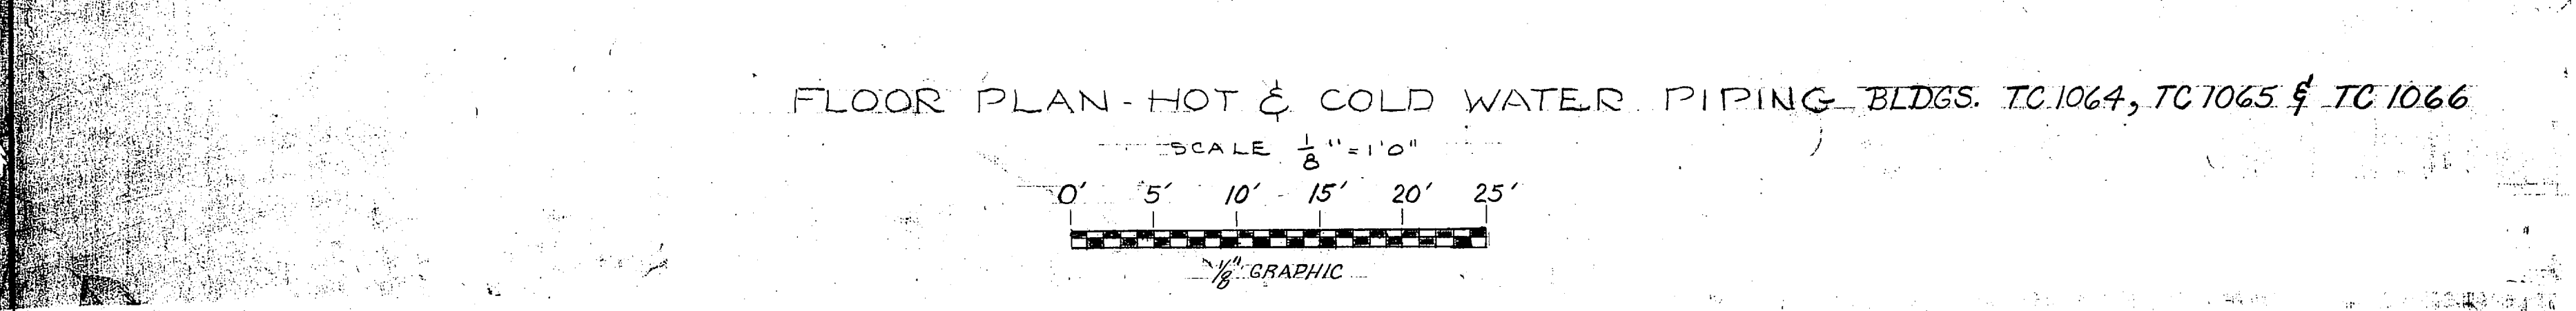 FLOOR PLAN - HOT & COLD WATER PIPING BLDGS. TC 1064, TC 1065 & TC 1066
SCALE 1/8" = 1'0"
0' 5' 10' 15' 20' 25'
1/8" GRAPHIC